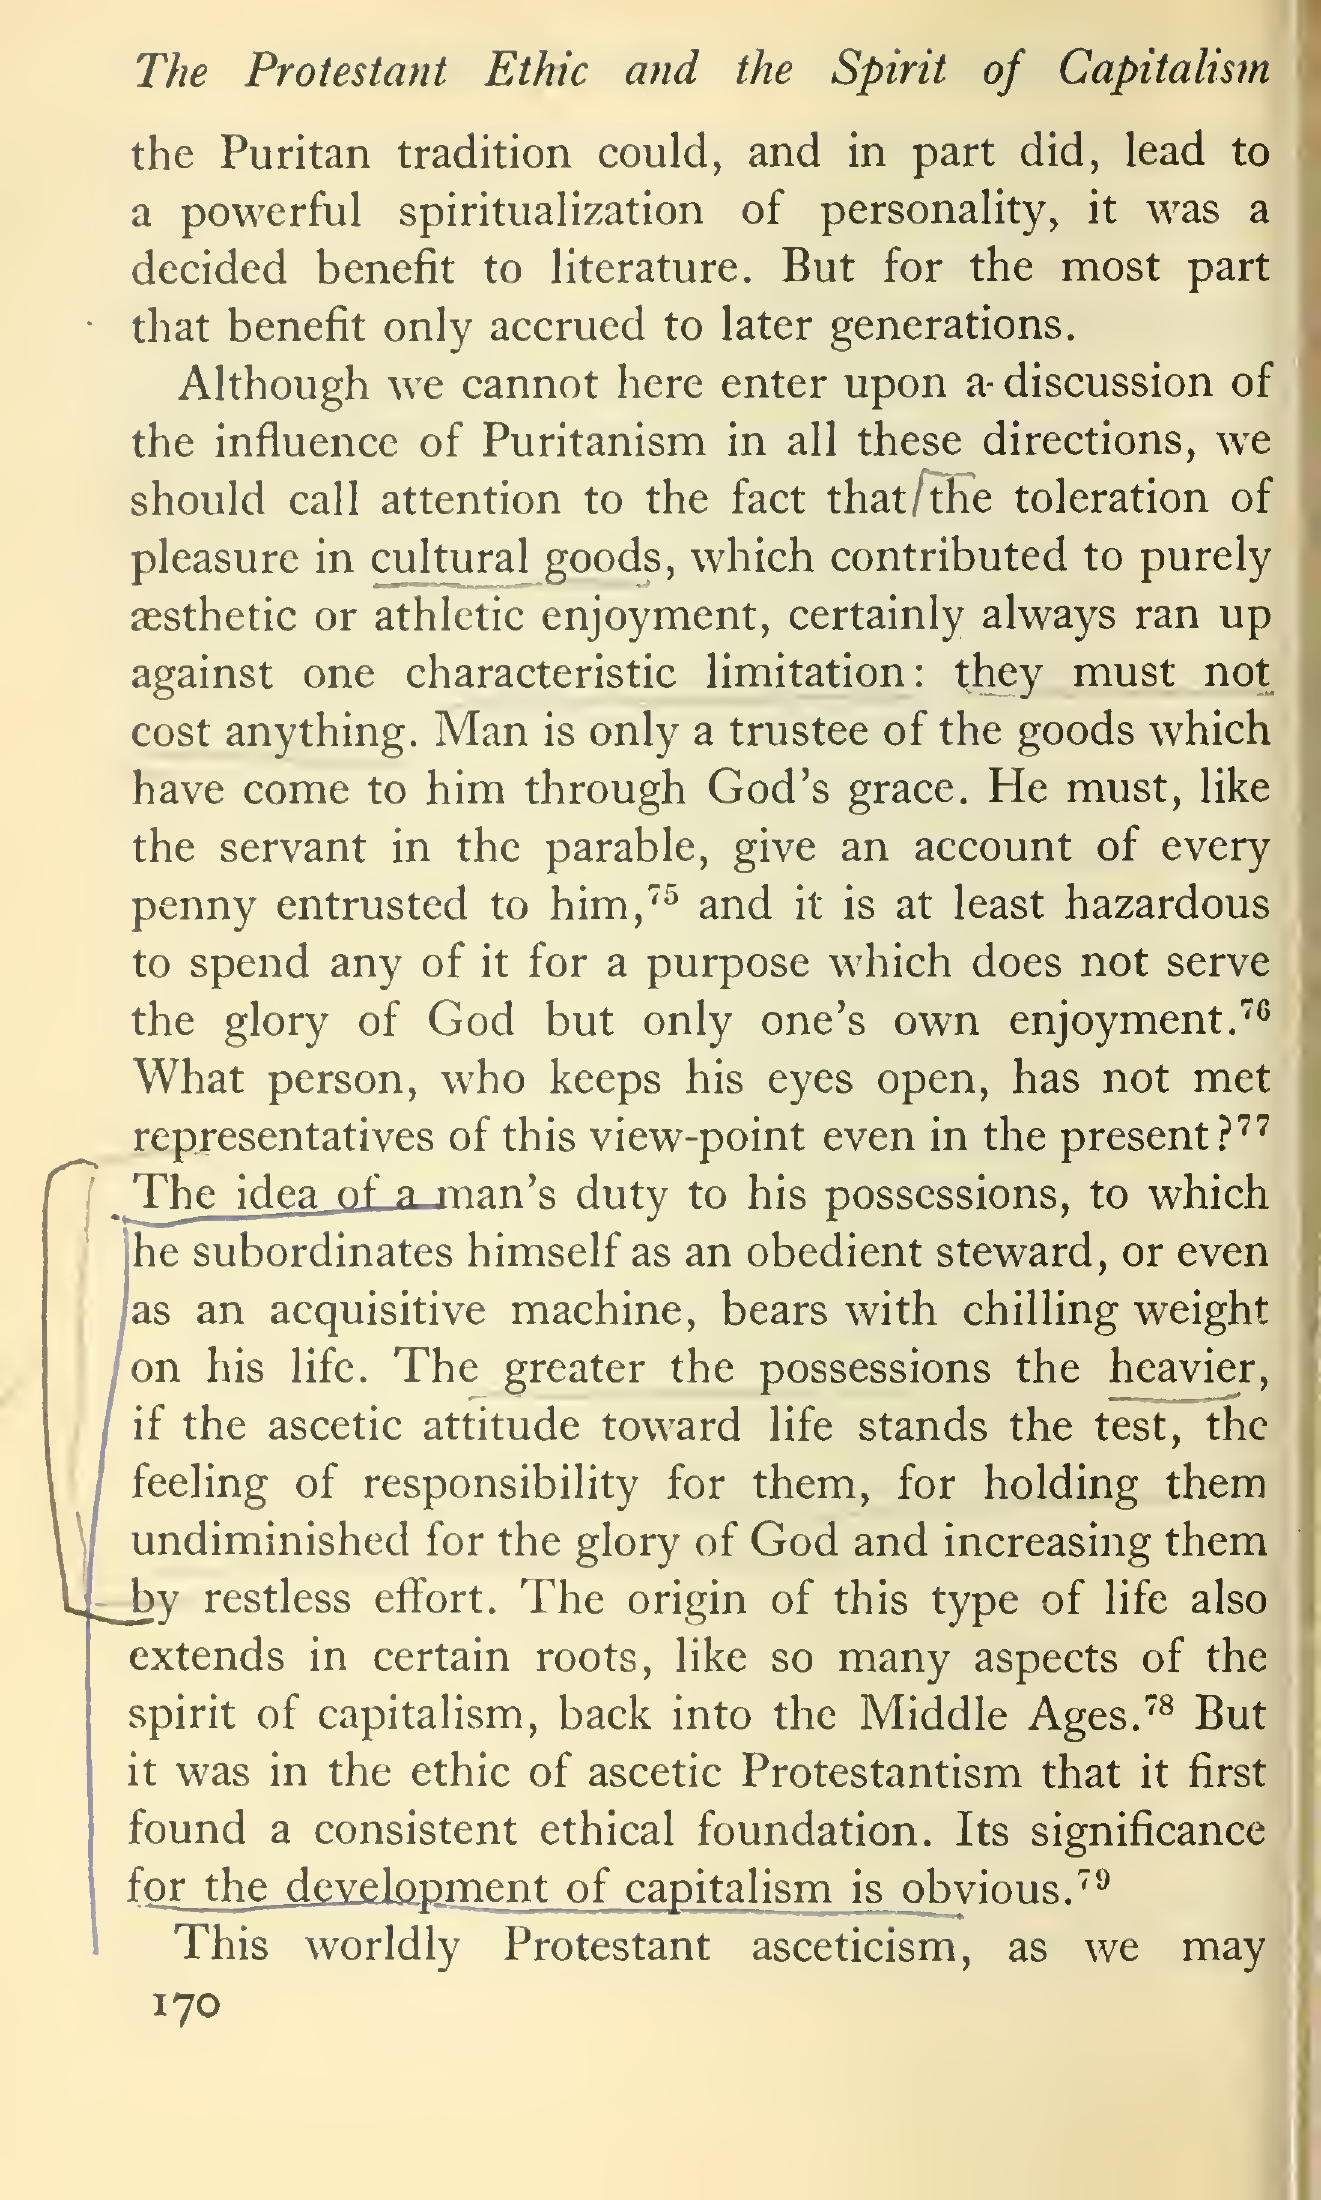 The Protestant Ethic and the Spirit of Capitalism
the Puritan tradition could, and in part did, lead to
a powerful spiritualization of personality, it was a
decided benefit to literature. But for the most part
that benefit only accrued to later generations.
Although we cannot here enter upon a discussion of
the influence of Puritanism in all these directions, we
should call attention to the fact that the toleration of
pleasure in cultural goods, which contributed to purely
æsthetic or athletic enjoyment, certainly always ran up
against one characteristic limitation: they must not
cost anything. Man is only a trustee of the goods which
have come to him through God's grace. He must, like
the servant in the parable, give an account of every
penny entrusted to him,⁷⁵ and it is at least hazardous
to spend any of it for a purpose which does not serve
the glory of God but only one's own enjoyment.⁷⁶
What person, who keeps his eyes open, has not met
representatives of this view-point even in the present?⁷⁷
The idea of a man's duty to his possessions, to which
he subordinates himself as an obedient steward, or even
as an acquisitive machine, bears with chilling weight
on his life. The greater the possessions the heavier,
if the ascetic attitude toward life stands the test, the
feeling of responsibility for them, for holding them
undiminished for the glory of God and increasing them
by restless effort. The origin of this type of life also
extends in certain roots, like so many aspects of the
spirit of capitalism, back into the Middle Ages.⁷⁸ But
it was in the ethic of ascetic Protestantism that it first
found a consistent ethical foundation. Its significance
for the development of capitalism is obvious.⁷⁹
This worldly Protestant asceticism, as we may
170